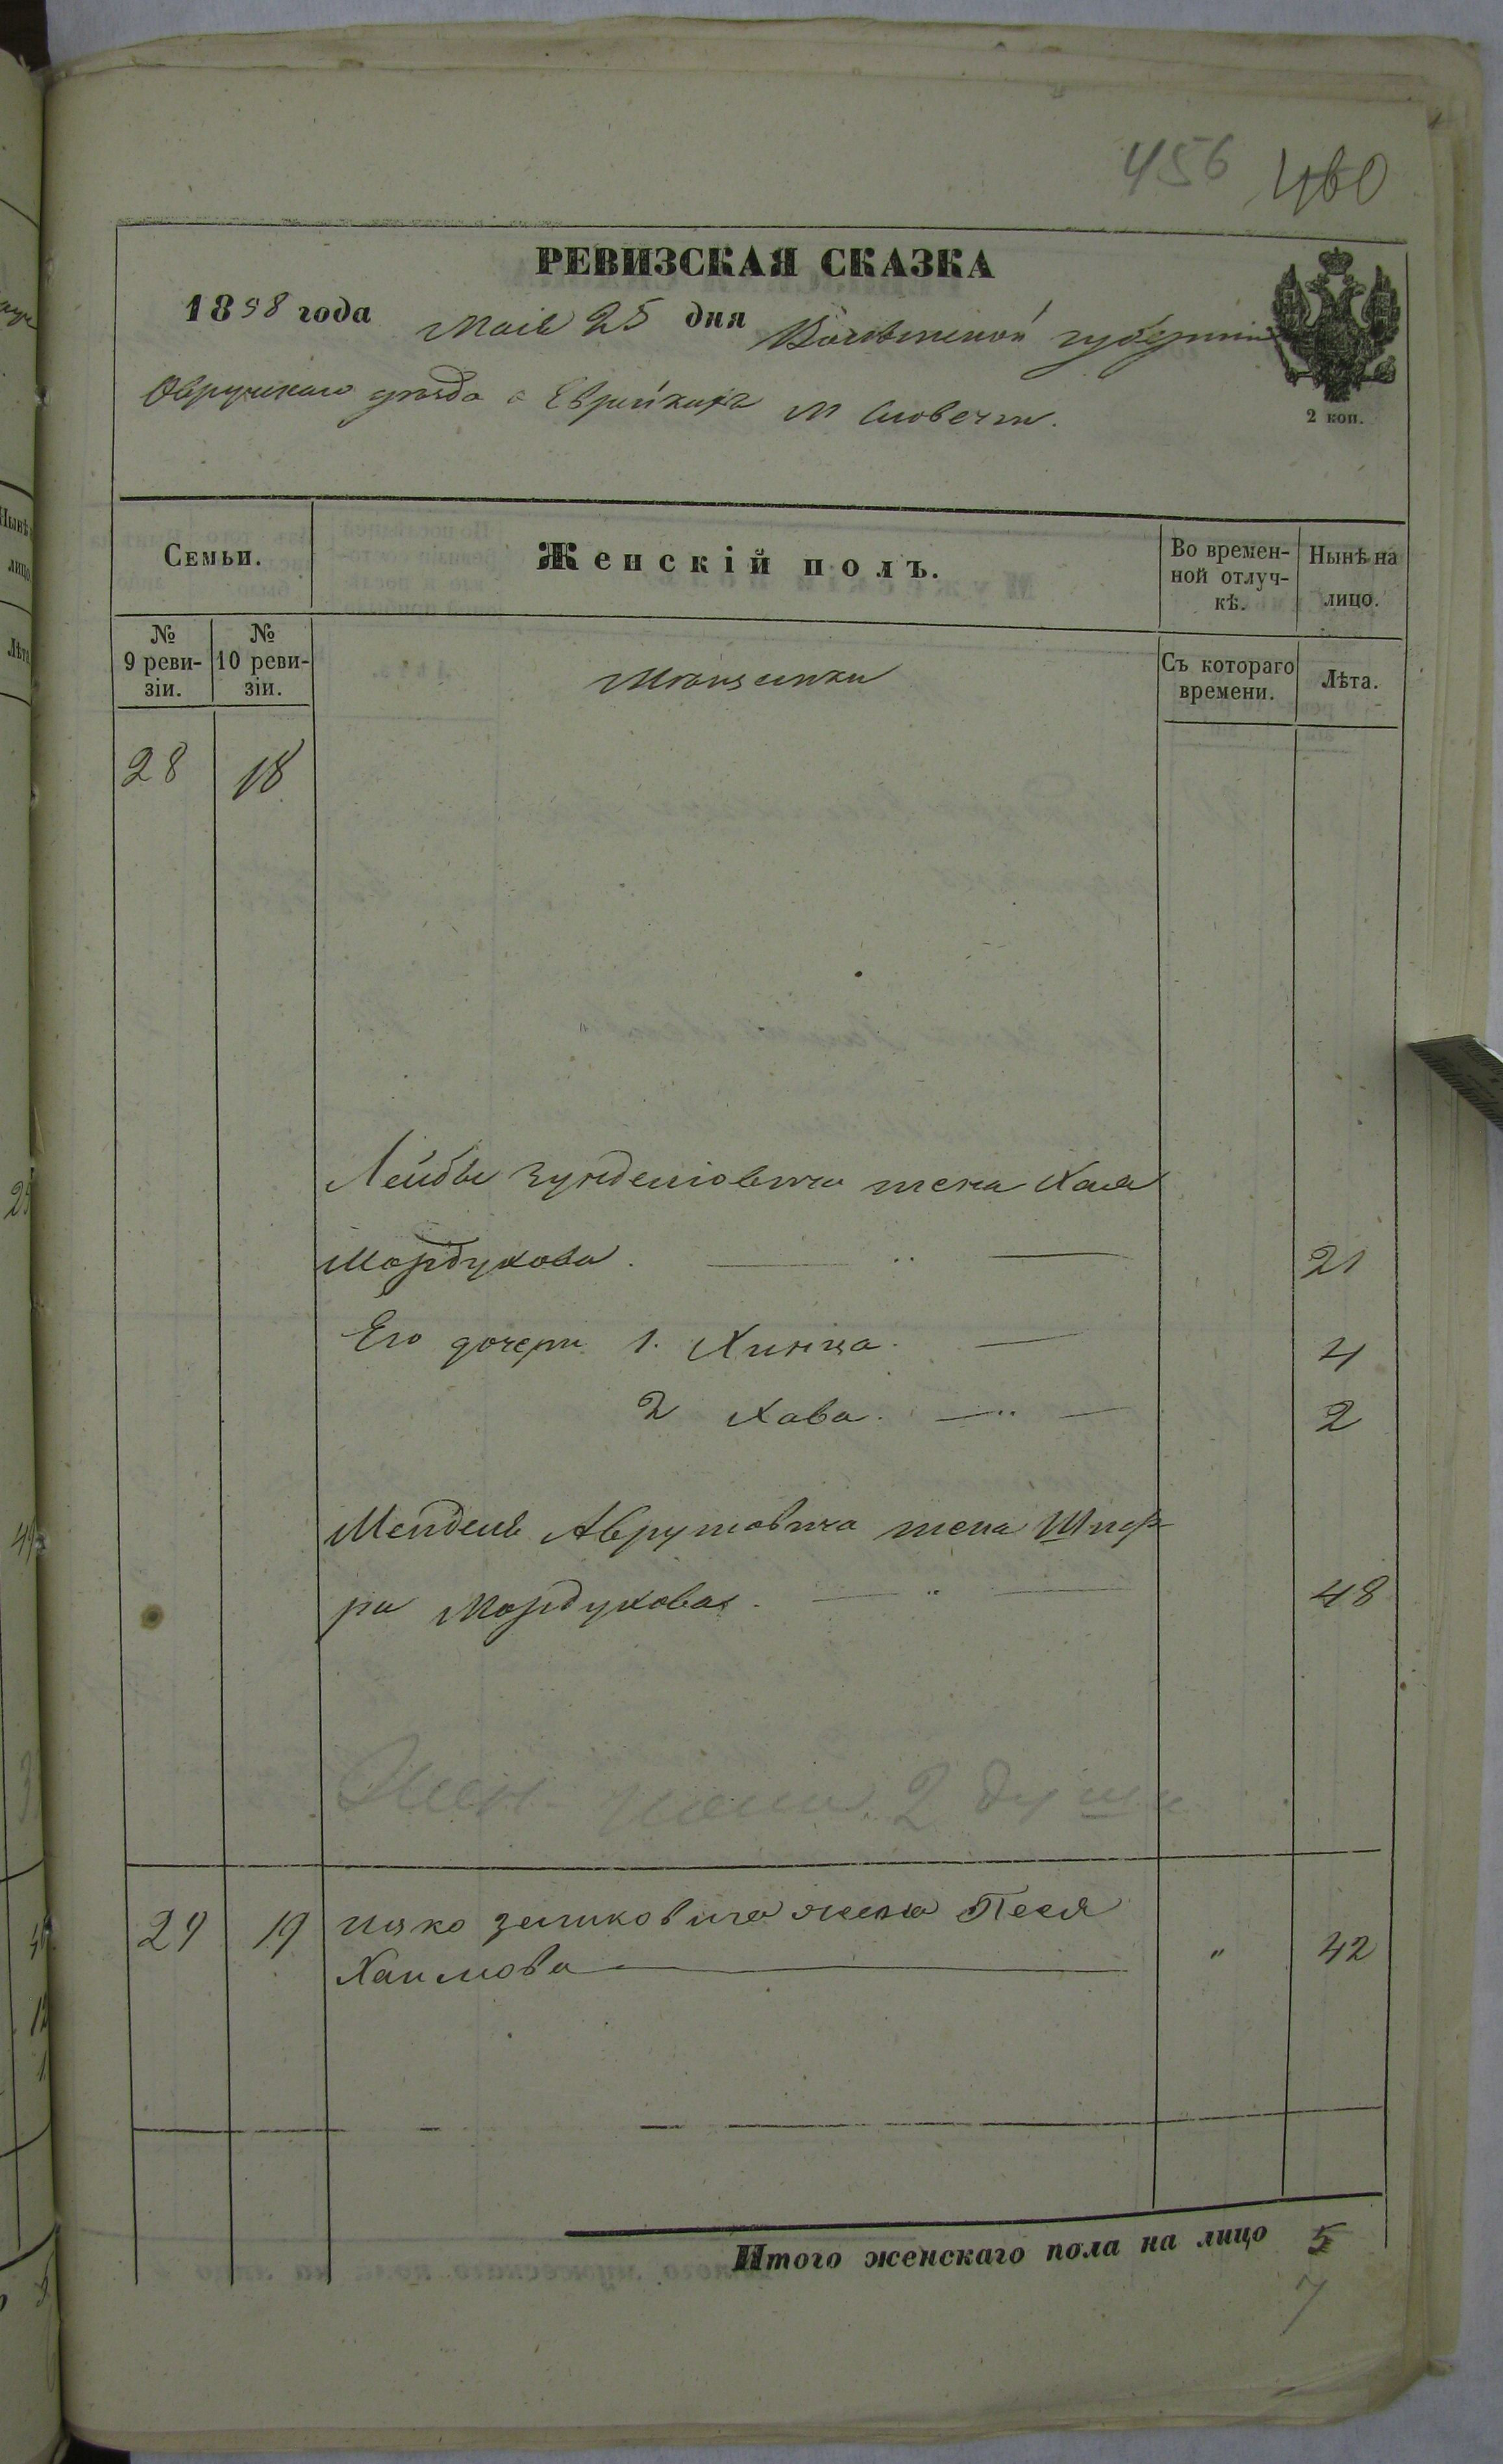 456 460
РЕВИЗСКАЯ СКАЗКА
1858 года Маія 25 дня Волынской губерніи
Овручскаго уѣзда о Еврейкахъ м Словечны.
2 коп.
Семьи.
Женскій полъ.
Во времен-
ной отлуч-
кѣ.
Нынѣ на
лицо.
№
9 реви-
зіи.
№
10 реви-
зіи.
Мѣщанки
Съ котораго
времени.
Лѣта.
28 18
Лейбы Зунделіовича жена Хая
Мордухова. 21
Его дочери 1. Хинца. 4
2 Хава. 2
Мендель Аврумовича жена Шпр
ра Мордухова. 48
Жен пола 2 души
29 19 Ицко Зеликовича жена Песя
Хаимова " 42
Итого женскаго пола на лицо 5
7